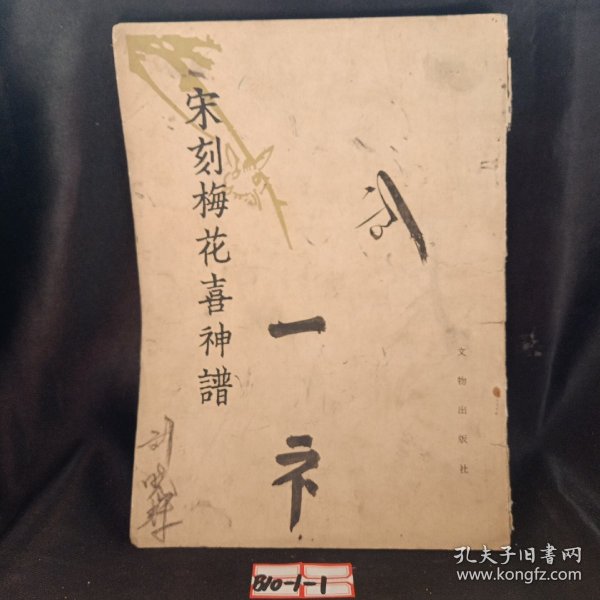 宋刻梅花喜神譜
一
文物出版社
B10-1-1
孔夫子旧书网
www.kongfz.com